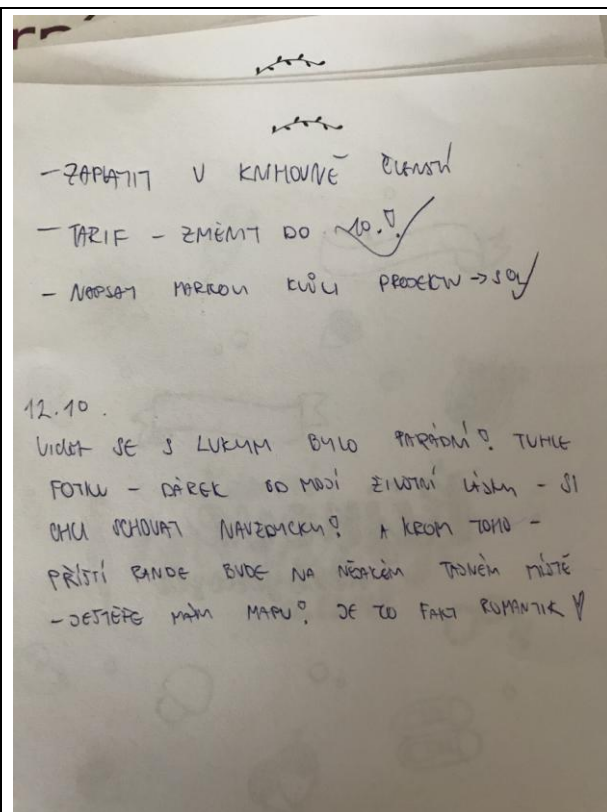 - ZAPLATIT V KNIHOVNĚ ČLENSTVÍ
- TARIF - ZMĚNIT DO 20.!
- NAPSAT MARKOVI KVŮLI PROJEKTU →
12.10.
VIDĚT SE S LUKYM BYLO PARÁDNÍ! TUHLE
FOTKU - DÁREK OD MOJÍ ŽIVOTNÍ LÁSKY - SI
CHCI SCHOVAT NAVŽDYCKY! A KROM TOHO -
PŘÍŠTÍ RANDE BUDE NA NĚJAKÉM TAJNÉM MÍSTĚ
- JEŠTĚŽE MÁM MAPU! JE TO FAKT ROMANTIK